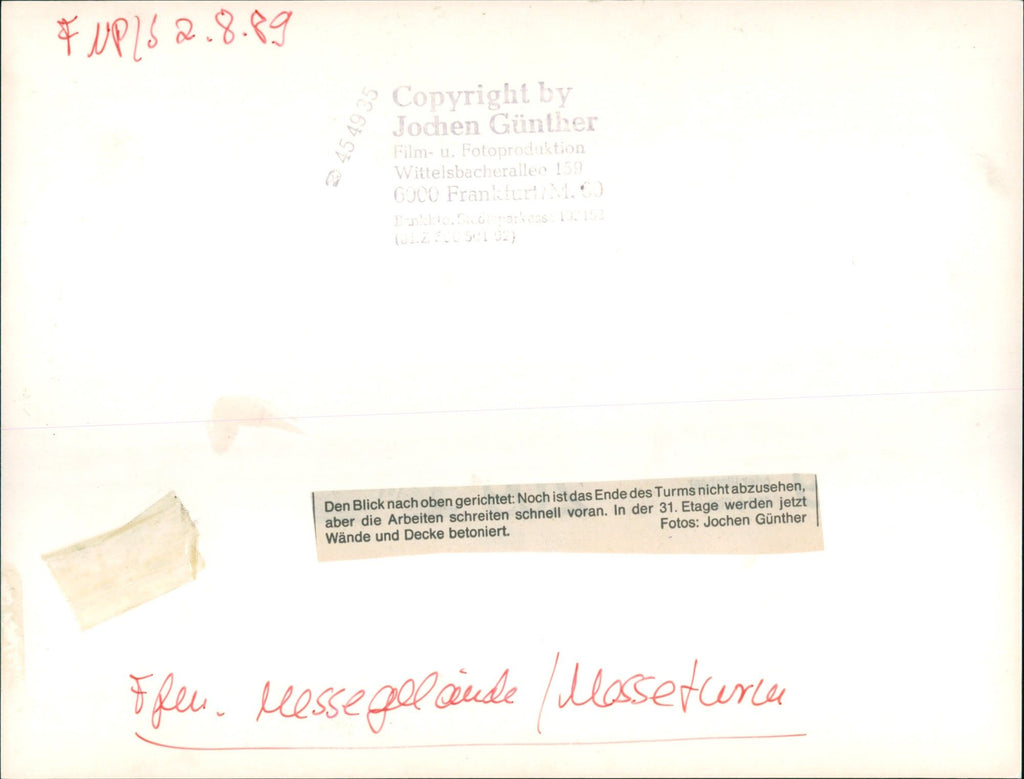 F NP/S 2.8.89
☎ 45 49 35
Copyright by
Jochen Günther
Film- u. Fotoproduktion
Wittelsbacherallee 159
6000 Frankfurt/M. 60
Den Blick nach oben gerichtet: Noch ist das Ende des Turms nicht abzusehen,
aber die Arbeiten schreiten schnell voran. In der 31. Etage werden jetzt
Wände und Decke betoniert. Fotos: Jochen Günther
Ffm. Messegelände / Messeturm